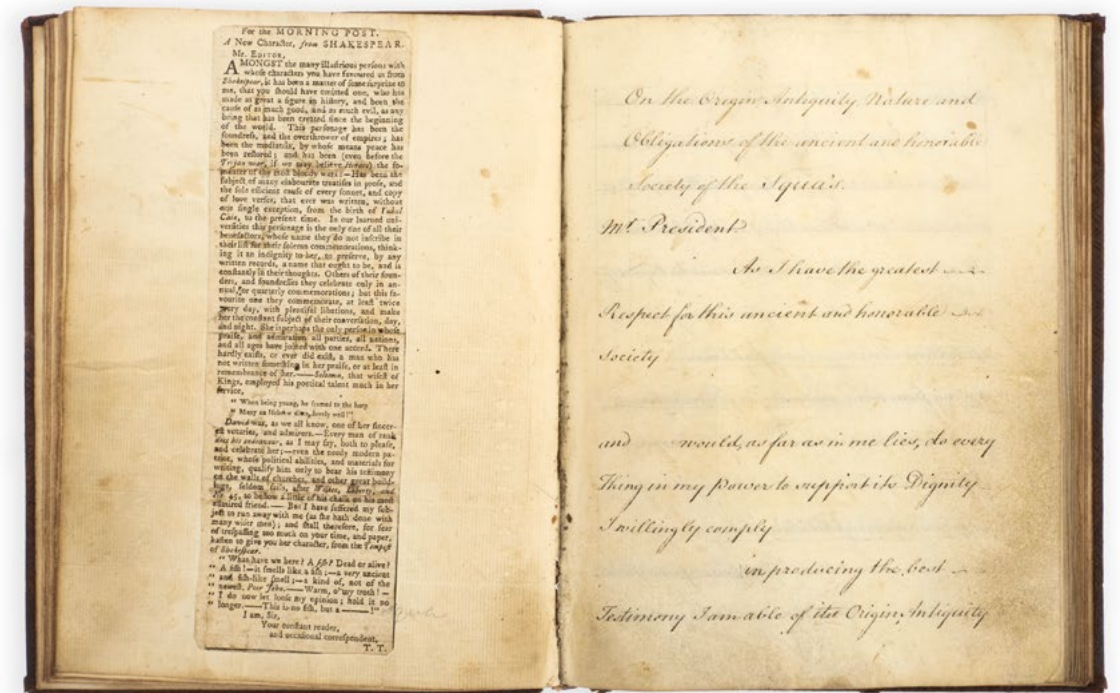 For the MORNING POST.
A New Character, from SHAKESPEAR.
Mr. EDITOR,
AMONGST the many illustrious persons with
whose characters you have favoured us from
Shakespear, it has been a matter of some surprize to
me, that you should have omitted one, who has
made as great a figure in history, and been the
cause of as much good, and as much evil, as any
being that has been created since the beginning
of the world. This personage has been the
foundress, and the overthrower of empires; has
been the mediatrix, by whose means peace has
been restored; and has been (even before the
Trojan war, if we may believe Horace) the fo-
menter of the most bloody wars!—Has been the
subject of many elabourate treatises in prose, and
the sole efficient cause of every sonnet, and copy
of love verses, that ever was written, without
one single exception, from the birth of Tubal
Cain, to the present time. In our learned uni-
versities this personage is the only one of all their
benefactors, whose name they do not inscribe in
their list for their solemn commemorations, think-
ing it an indignity to her, to preserve, by any
written records, a name that ought to be, and is
constantly in their thoughts. Others of their foun-
ders, and foundresses they celebrate only in an-
nual, or quarterly commemorations; but this fa-
vourite one they commemorate, at least twice
every day, with plentiful libations, and make
her the constant subject of their conversation, day,
and night. She is perhaps the only person in whose
praise, and admiration all parties, all nations,
and all ages have joined with one accord. There
hardly exists, or ever did exist, a man who has
not written something in her praise, or at least in
remembrance of her.——Solomon, that wisest of
Kings, employed his poetical talent much in her
service,
" When being young, he strummed to the harp
" Many an down, lovely well!"
David was, as we all know, one of her sincer-
est votaries, and admirers.—Every man of rank
does his endeavour, as I may say, both to please,
and celebrate her;—even the needy modern pa-
triot, whose political abilities, and materials for
writing, qualify him only to bear his testimony
on the walls of churches, and other great build-
ings, seldom fails, after Wilkes, Liberty, and
No. 45, to bestow a little of his chalk on his most
admired friend.—— But I have suffered my sub-
ject to run away with me (as she hath done with
many wiser men); and shall therefore, for fear
of trespassing too much on your time, and paper,
hasten to give you her character, from the Tempest
of Shakespear.
" What have we here? A fish? Dead or alive?
" A fish!—it smells like a fish;—a very ancient
" and fish-like smell;—a kind of, not of the
" newest, Poor John.——Warm, o' my troth!—
" I do now let loose my opinion; hold it no
" longer.——This is no fish, but a ———!"
I am, Sir,
Your constant reader,
and occasional correspondent,
T. T.
On the Origin Antiquity Nature and
Obligations of the ancient and honorable
Society of the
Mr. President
As I have the greatest
Respect for this ancient and honorable
Society
and would, as far as in me lies, do every
Thing in my Power to support its Dignity
I willingly comply
in producing the best
Testimony I am able of its Origin Antiquity